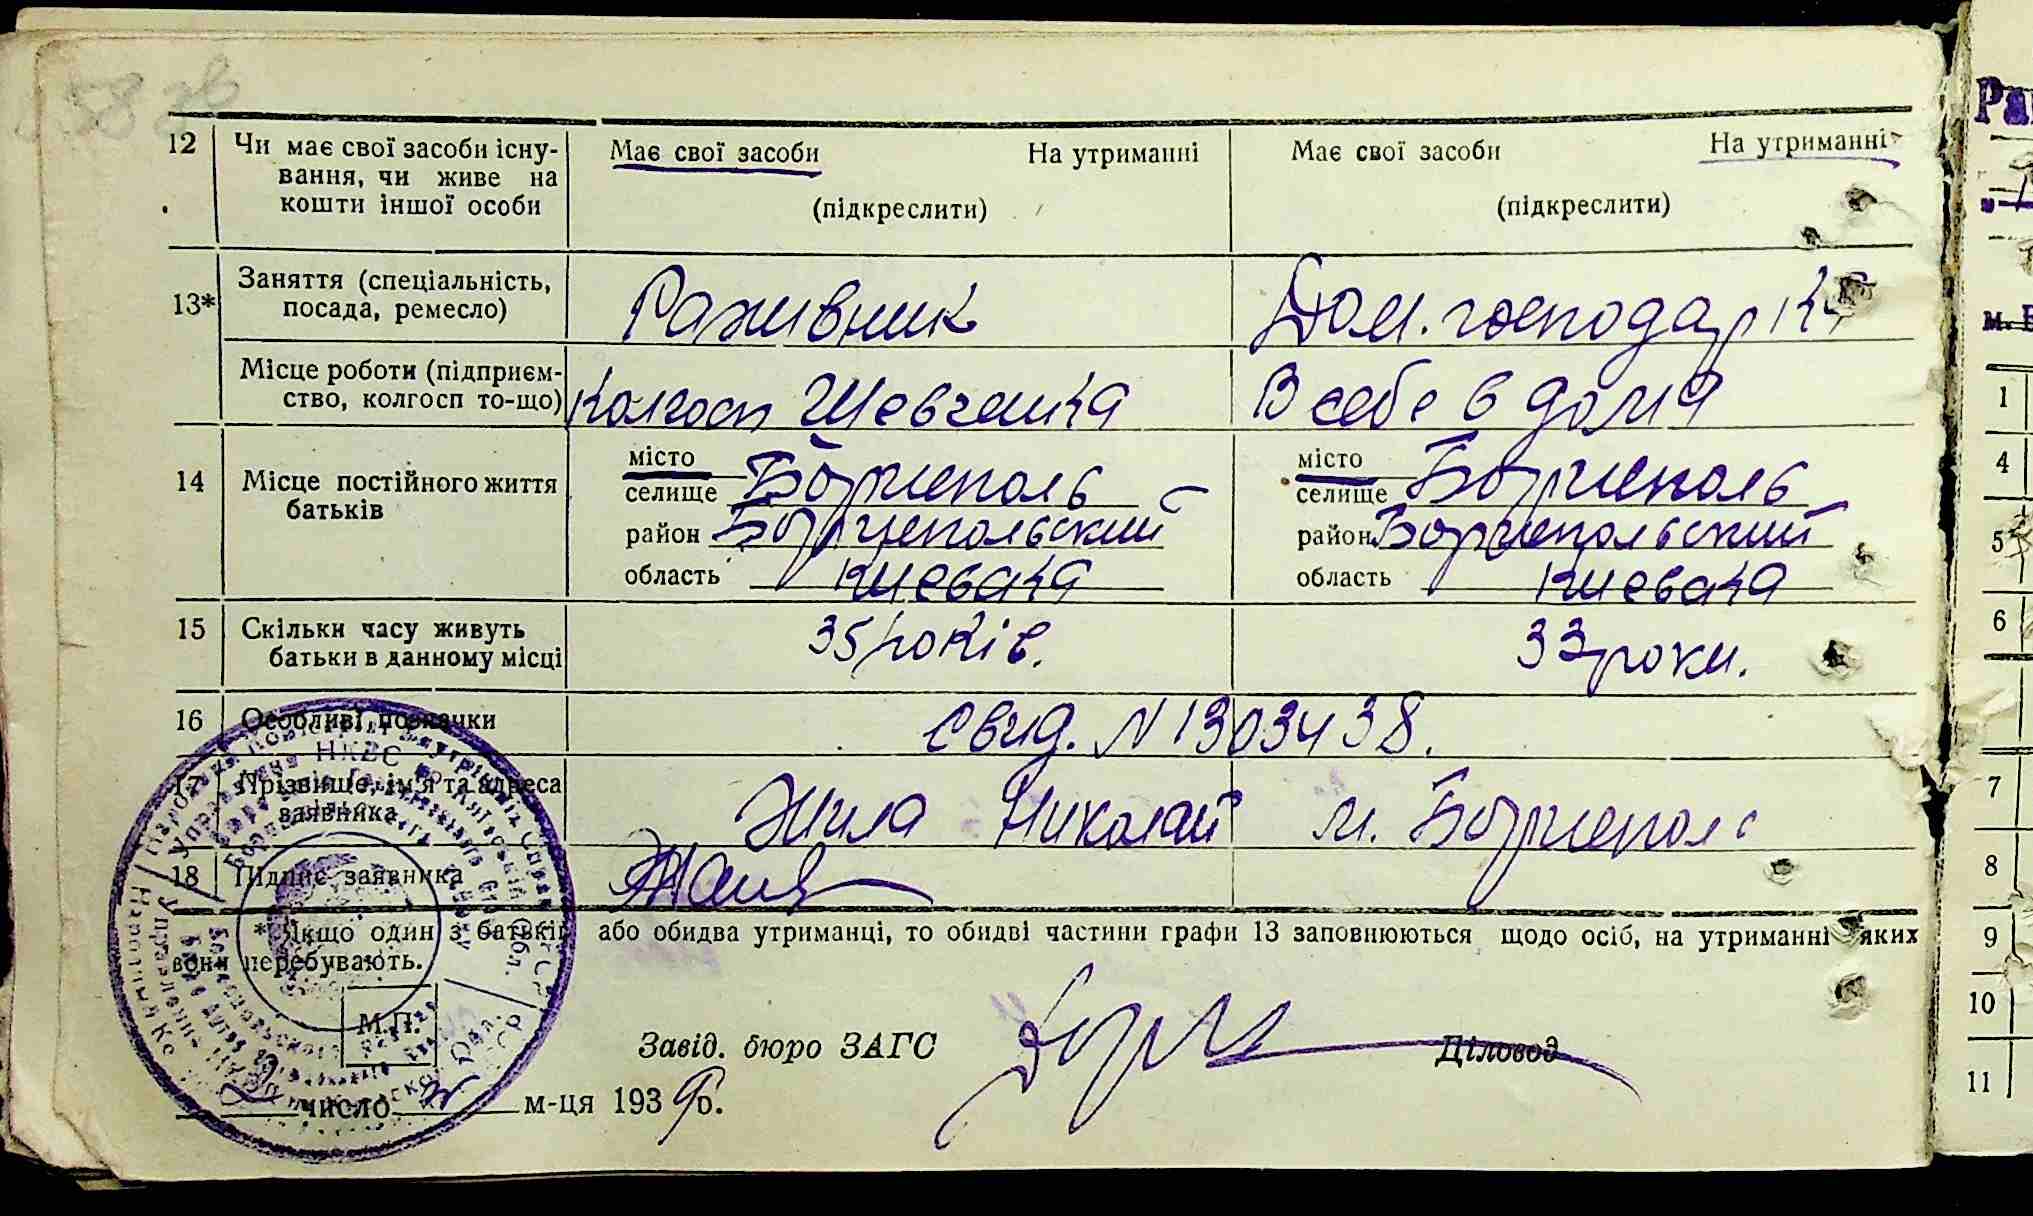 12 Чи має свої засоби існу- Має свої засоби На утриманні Має свої засоби На утриманні
вання, чи живе на
кошти іншої особи (підкреслити) (підкреслити)
13* Заняття (спеціальність, посада, ремесло) Раживник Дом. господарка
Місце роботи (підприєм-
ство, колгосп то-що) Колгосп Шевченка В себе в дома
14 Місце постійного життя батьків
місто місто
селище Борисполь селище Борисполь
район Бориспольский район Бориспольский
область Киевска область Киевска
15 Скільки часу живуть 35 років. 33 роки.
батьки в данному місці
16 Особливі позначки свид. N 1303438.
17 Прізвище, ім'я та адреса
заявника Жила Николай м. Борисполь
18 Підпис заявника
* Якщо один з батьків або обидва утриманці, то обидві частини графи 13 заповнюються щодо осіб, на утриманні яких
вони перебувають.
М.П.
Завід. бюро ЗАГС Діловод
2 число м-ця 1939 р.
Ра
м. Б
1
4
5
6
7
8
9
10
11